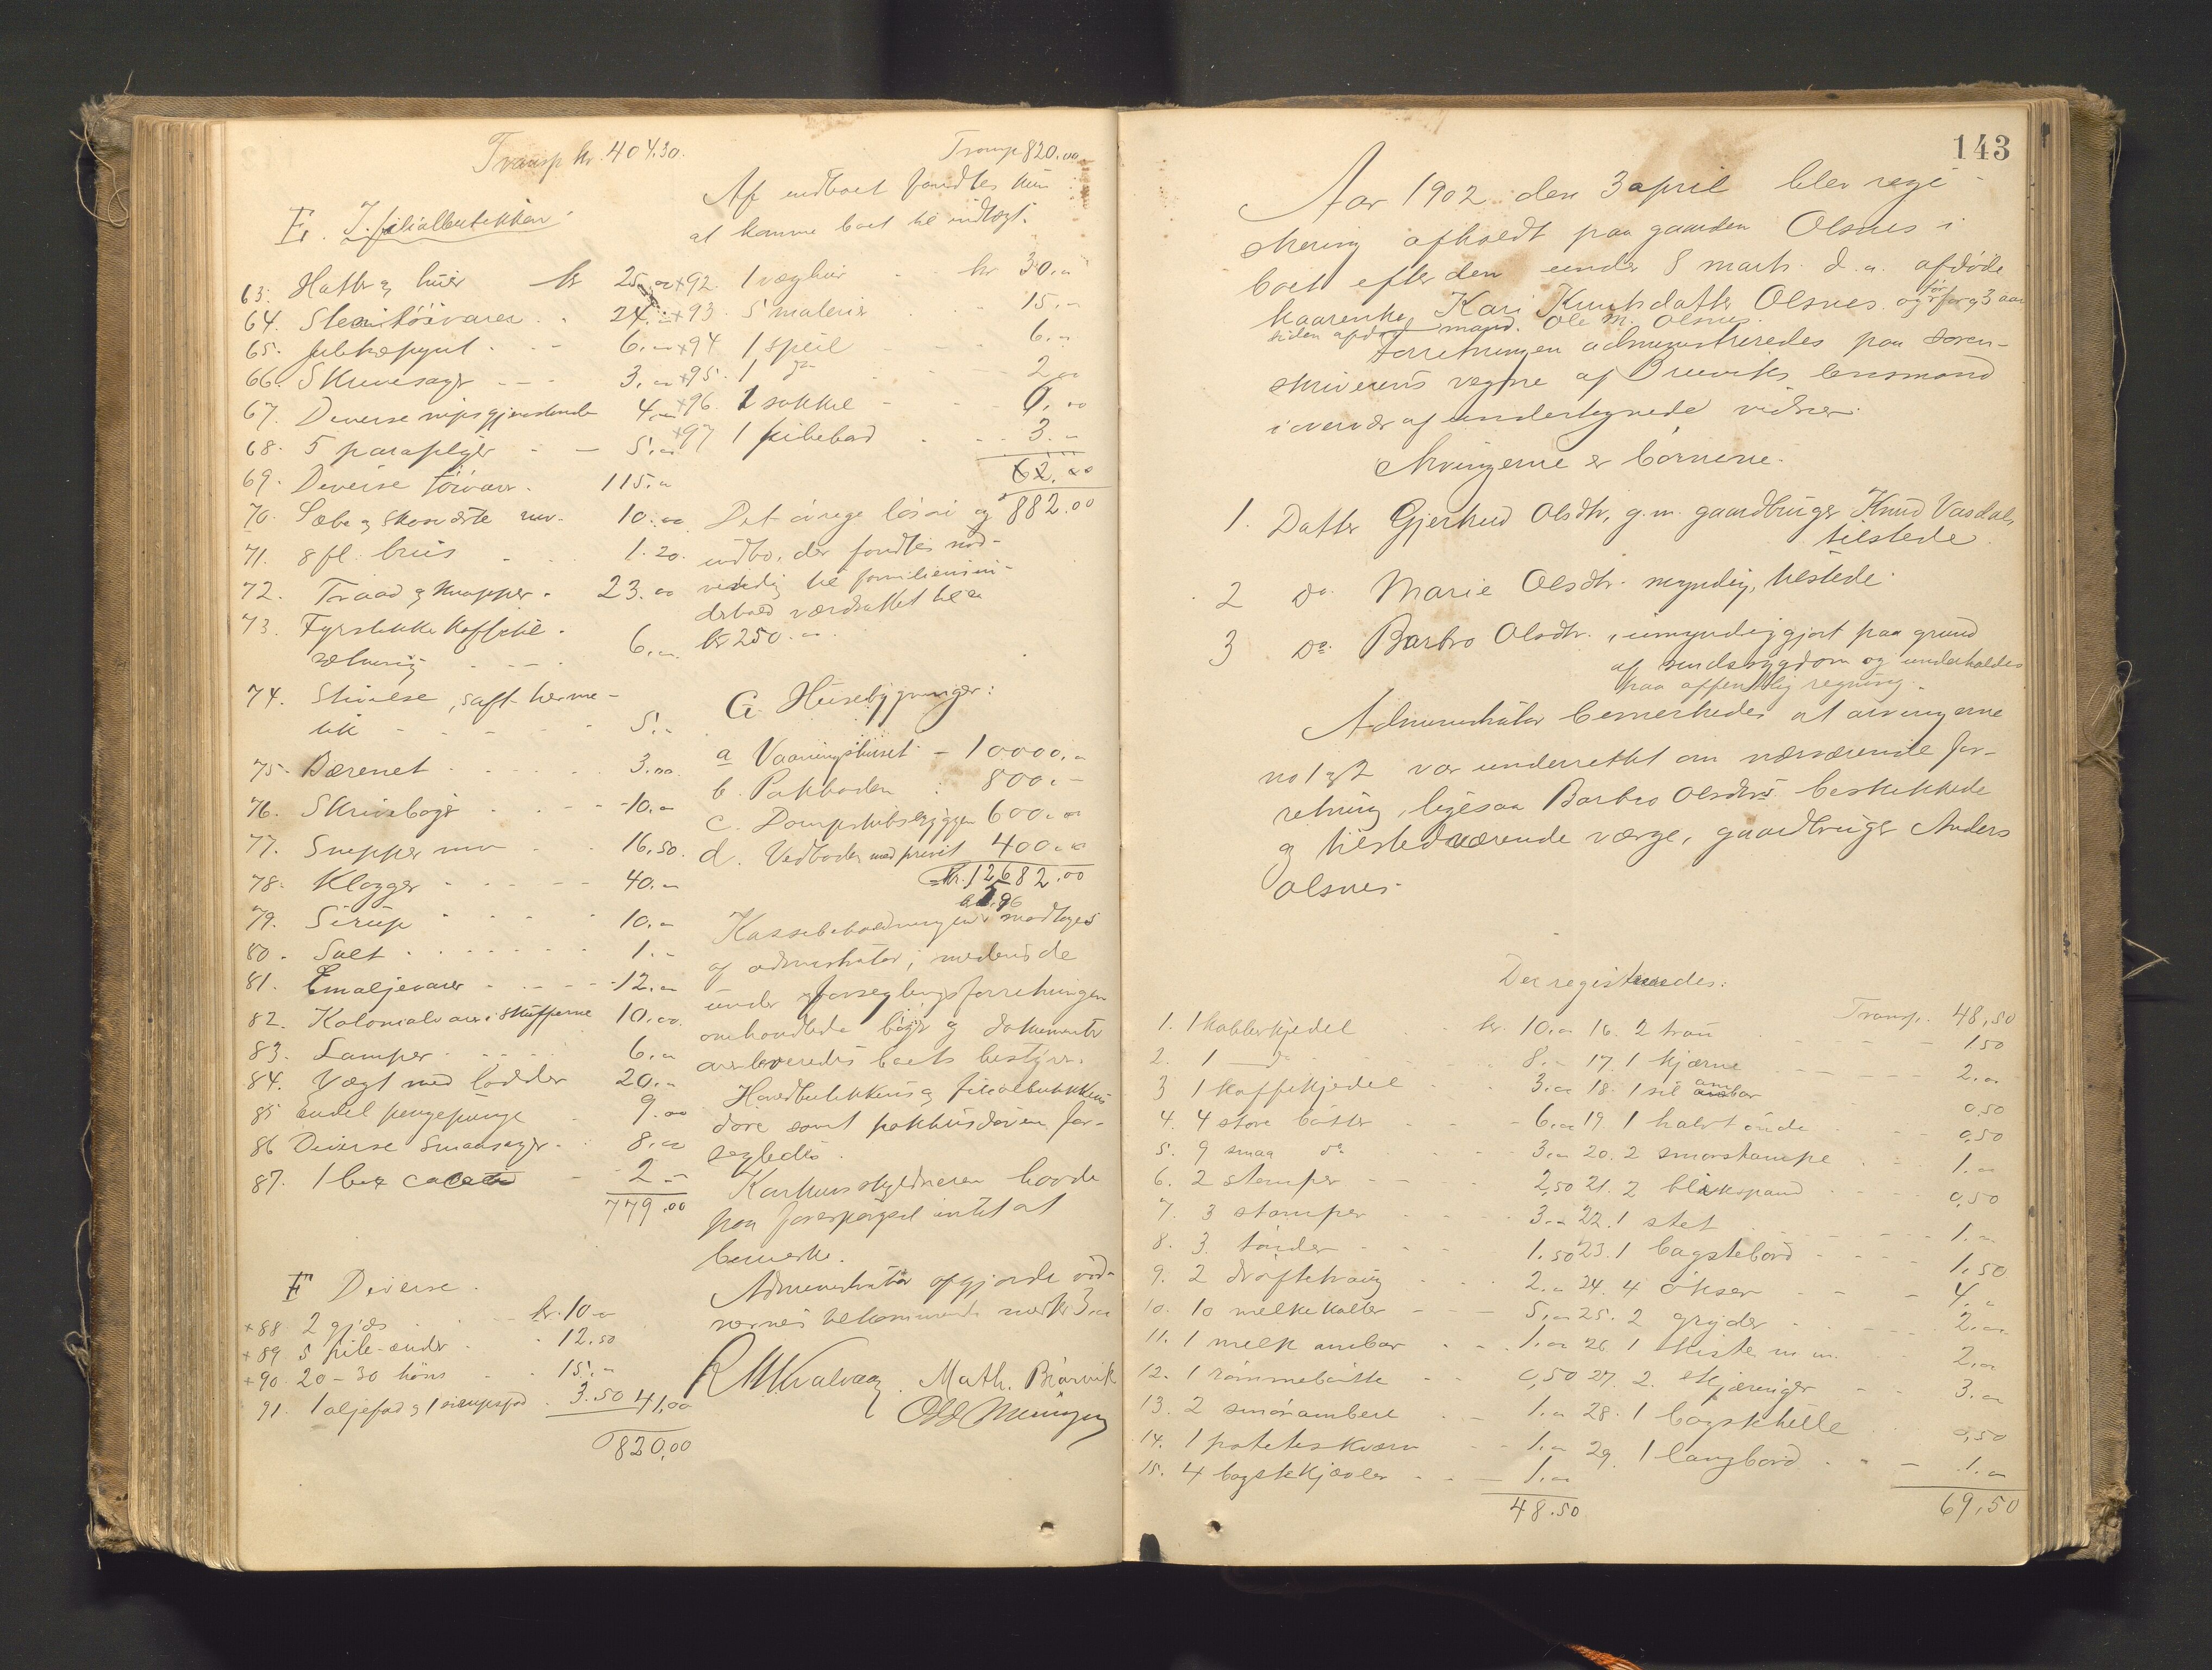 Transp kr. 404.30.
E. I filialbutikken
63. Hatte og huer kr 25.00
64. Stentöivarer 24.00
65. Juletræpynt 6.00
66. Skruesager 3.00
67. Diverse nipsgjenstande 4.00
68. 5 paraplyer 5.00
69. Diverse töivarer 115.00
70. Sæbe og Skosværte mv. 10.00
71. 8 fl. brus 1.20.
72. Traad og Knapper 23.00
73. Fyrstikker Kaffetil-
sætning 6.00
74. Stivelse, saft- herme-
tik 5.-
75. Bærenet 3.00.
76. Skrivebøger 10.00
77. Snepper mv 16.50.
78. Klogger 40.00
79. Sirup 10.-
80. Salt 1.-
81. Emaljevarer 12.00
82. Kolonialvarer i Skufferne 10.00.
83. Lamper 6.00
84. Vægt med lodder 20.-
85 Endel pengepunge 9.00
86 Diverse Smaasager 8.00
87. 1 2.-
779.00
F Diverse.
+88. 2 gjæs kr. 10.00
+89 5 pibe-ender 12.50
+90. 20-30 höns 15.-
91. 1 oljefad og 1 sirupsfad 3.50 41,00
820,00
Transp 820.00
Af indboet fandtes kun
at komme boet til indtægt.
+92. 1 væghur kr 30.00
+93. 5 malerier 15.-
+94 1 speil 6.-
+95. 1 do 2.00
+96. 1 sokkel 6.00
+97 1 pibebord 3.-
62.00
882.00
Det övrige lösöre og
indbo, der fandtes nöd-
vendig til familiens un-
derhold værdsattet til ca
kr 250.-
G. Husebygninger:
a Vaaningshuset - 10000.-
b. Pakboden 800.-
c. Dampskibsbryggen 600.00
d. Vedboden med privet 400.00
Kr. 12682.00
Kassebeholdningen modtoges
af administrator, medens de
under forseglingsforretningen
omhandlede bøger og dokumenter
overleveredes boets bestyrer.
Hovedbutikkens og filialbutikkens
döre samt pakhusdören for-
segledes.
Konkursskyldneren havde
paa forespørgsel intet at
bemerke.
Administrator opgjorde vid-
nernes tilkommende med kr 3.00
R M Kvalvaag. Math. Brørvik
143
Aar 1902 den 3 april blev regi-
strering afholdt paa gaarden Olsnes i
boet efter den under 8 marts d. a. afdöde
kaarenke Kari Knutsdatter Olsnes og for 3 aar
siden afdöd mand. Ole M. Olsnes.
Forretningen administreredes paa soren-
skriverens vegne af Bruviks lensmand
i overvær af undertegnede vidner.
Arvingerne er börnene.
1. Datter Gjertrud Olsdtr, g. m. gaardbruger Knud Vasdal,
tilstede.
2 Do. Marie Olsdtr. myndig, tilstede.
3 Do. Barbro Olsdtr., umyndiggjort paa grund
af sindssygdom og underholdes
paa offentlig regning.
Administrator bemerkedes at arvingerne
no 1 og 2 var underrettet om nærværende for-
retning, ligesaa Barbro Olsdtrs beskikkede
og tilstedeværende værge, gaardbruger Anders
Olsnes.
Der registreredes:
1. 1 kobberkjedel kr. 10.00
2. 1 do 8.-
3 1 kaffekjedel 3.00
4. 4 store bötter 6.00
5. 9 smaa do 3.00
6. 2 stamper 2,50
7. 3 stamper 3.-
8. 3 tönder 1.50
9. 2 dröftetraug 2.00
10. 10 melkekoller 5.00
11. 1 melk ambar 1.00
12. 1 römmebötte 0,50
13. 2 smörambere 1.00
14. 1 poteteskværn 1.00
15. 4 bagstekjævler 1.00
48.50
Transp. 48,50
16. 2 trau 1.50
17. 1 kjærne 2.00
18. 1 sil ambar 0,50
19. 1 halvtönde 0,50
20. 2 smörstampe 1.00
21. 2 blikspand 0,50
22. 1 stet 1.-
23. 1 bagstebord 1,50
24. 4 økser 4.-
25. 2 gryder 2.00
26. 1 kiste m m. 2,00
27. 2. skjæringer 3.00
28. 1 bagsthelle 0,50
29. 1 langbord 1.00
69,50